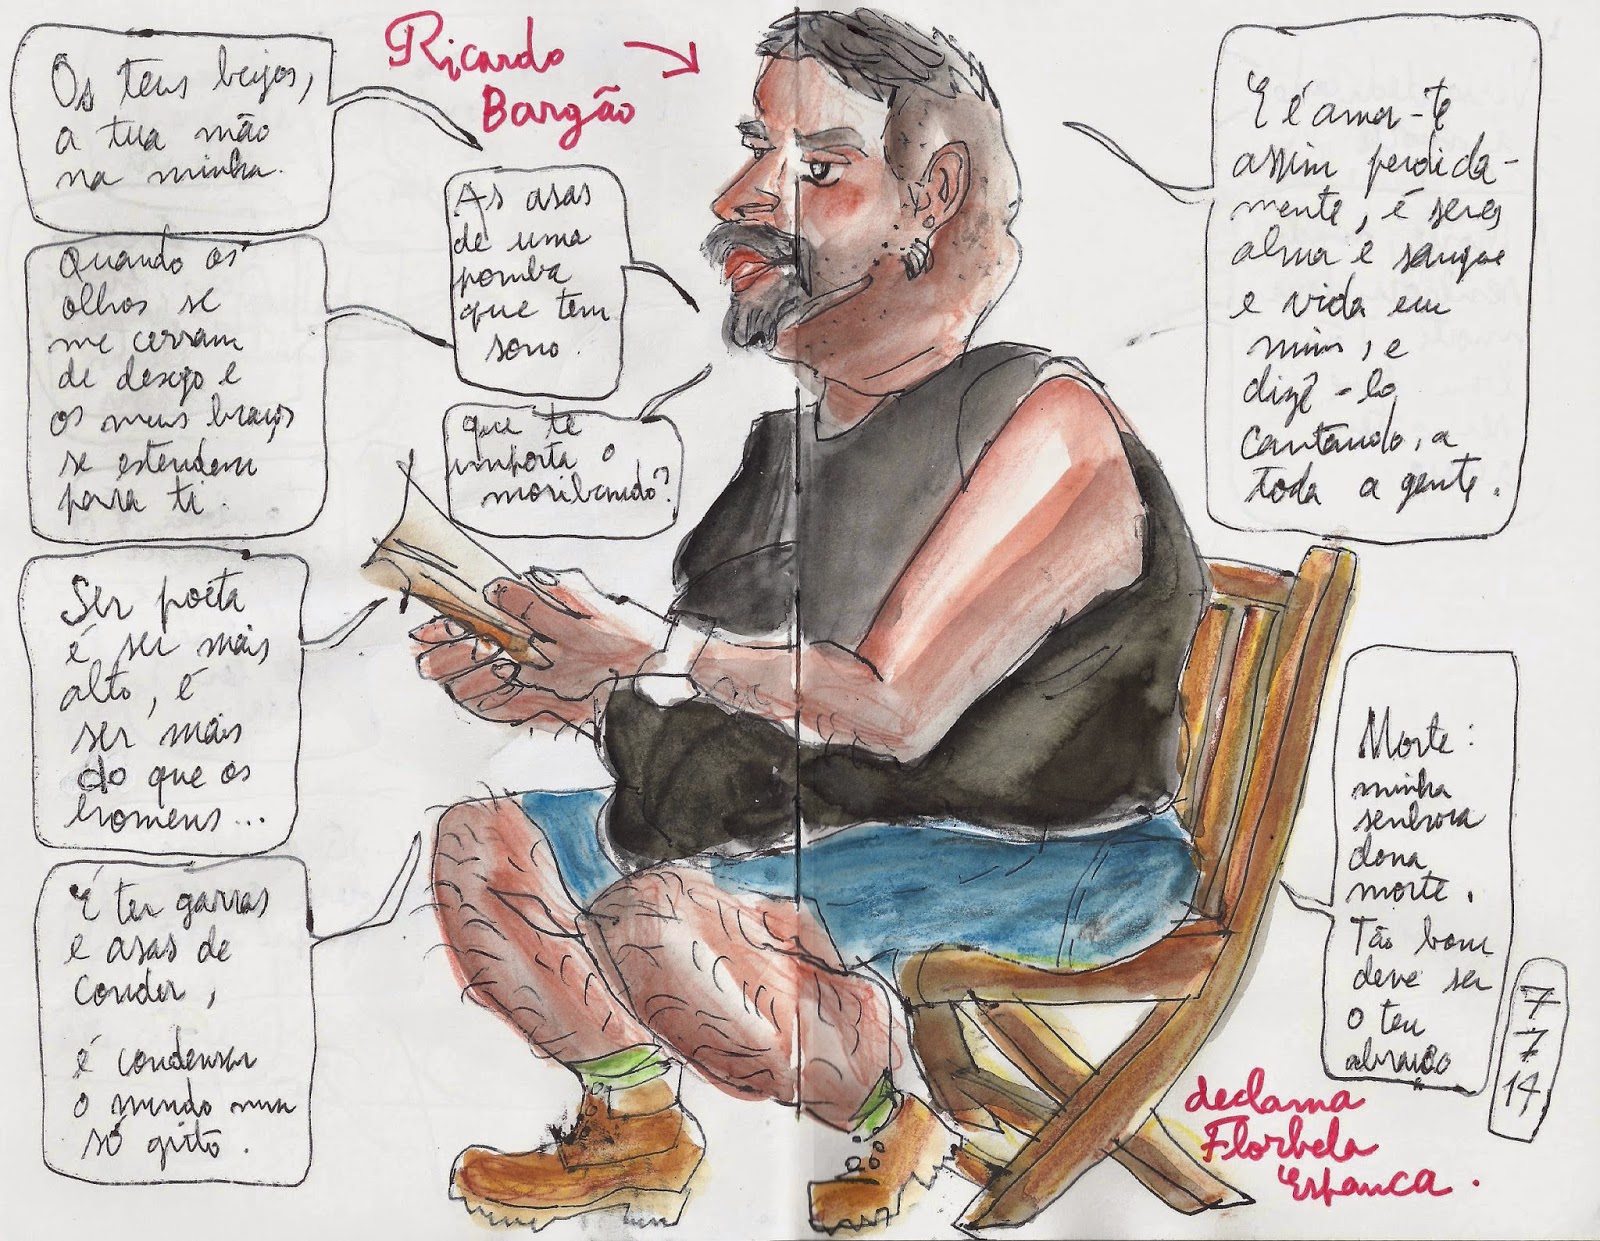 Ricardo
Bargão
Os teus beijos,
a tua mão
na minha.
Quando os
olhos se
me cerram
de desejo e
os meus braços
se estendem
para ti.
As asas
de uma
pomba
que tem
sono.
que te
importa o
moribundo?
Ser poeta
é ser mais
alto, é
ser mais
do que os
homens...
É ter garras
e asas de
Condor,
é condensar
o mundo num
só grito.
E é amar-te
assim perdida-
mente, é seres
alma e sangue
e vida em
mim, e
dizê-lo
cantando, a
toda a gente.
Morte:
minha
senhora
dona
morte.
Tão bom
deve ser
o teu
abraço
7
7
14
declama
Florbela
Espanca.